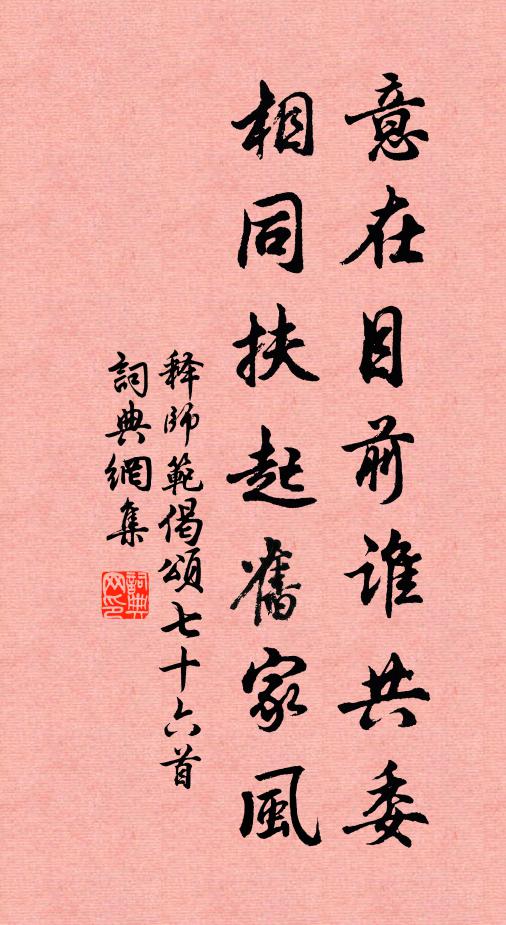 意在目前谁共委
相同扶起舊家風
释師範偈頌七十六首
詞典網集
詞典网印